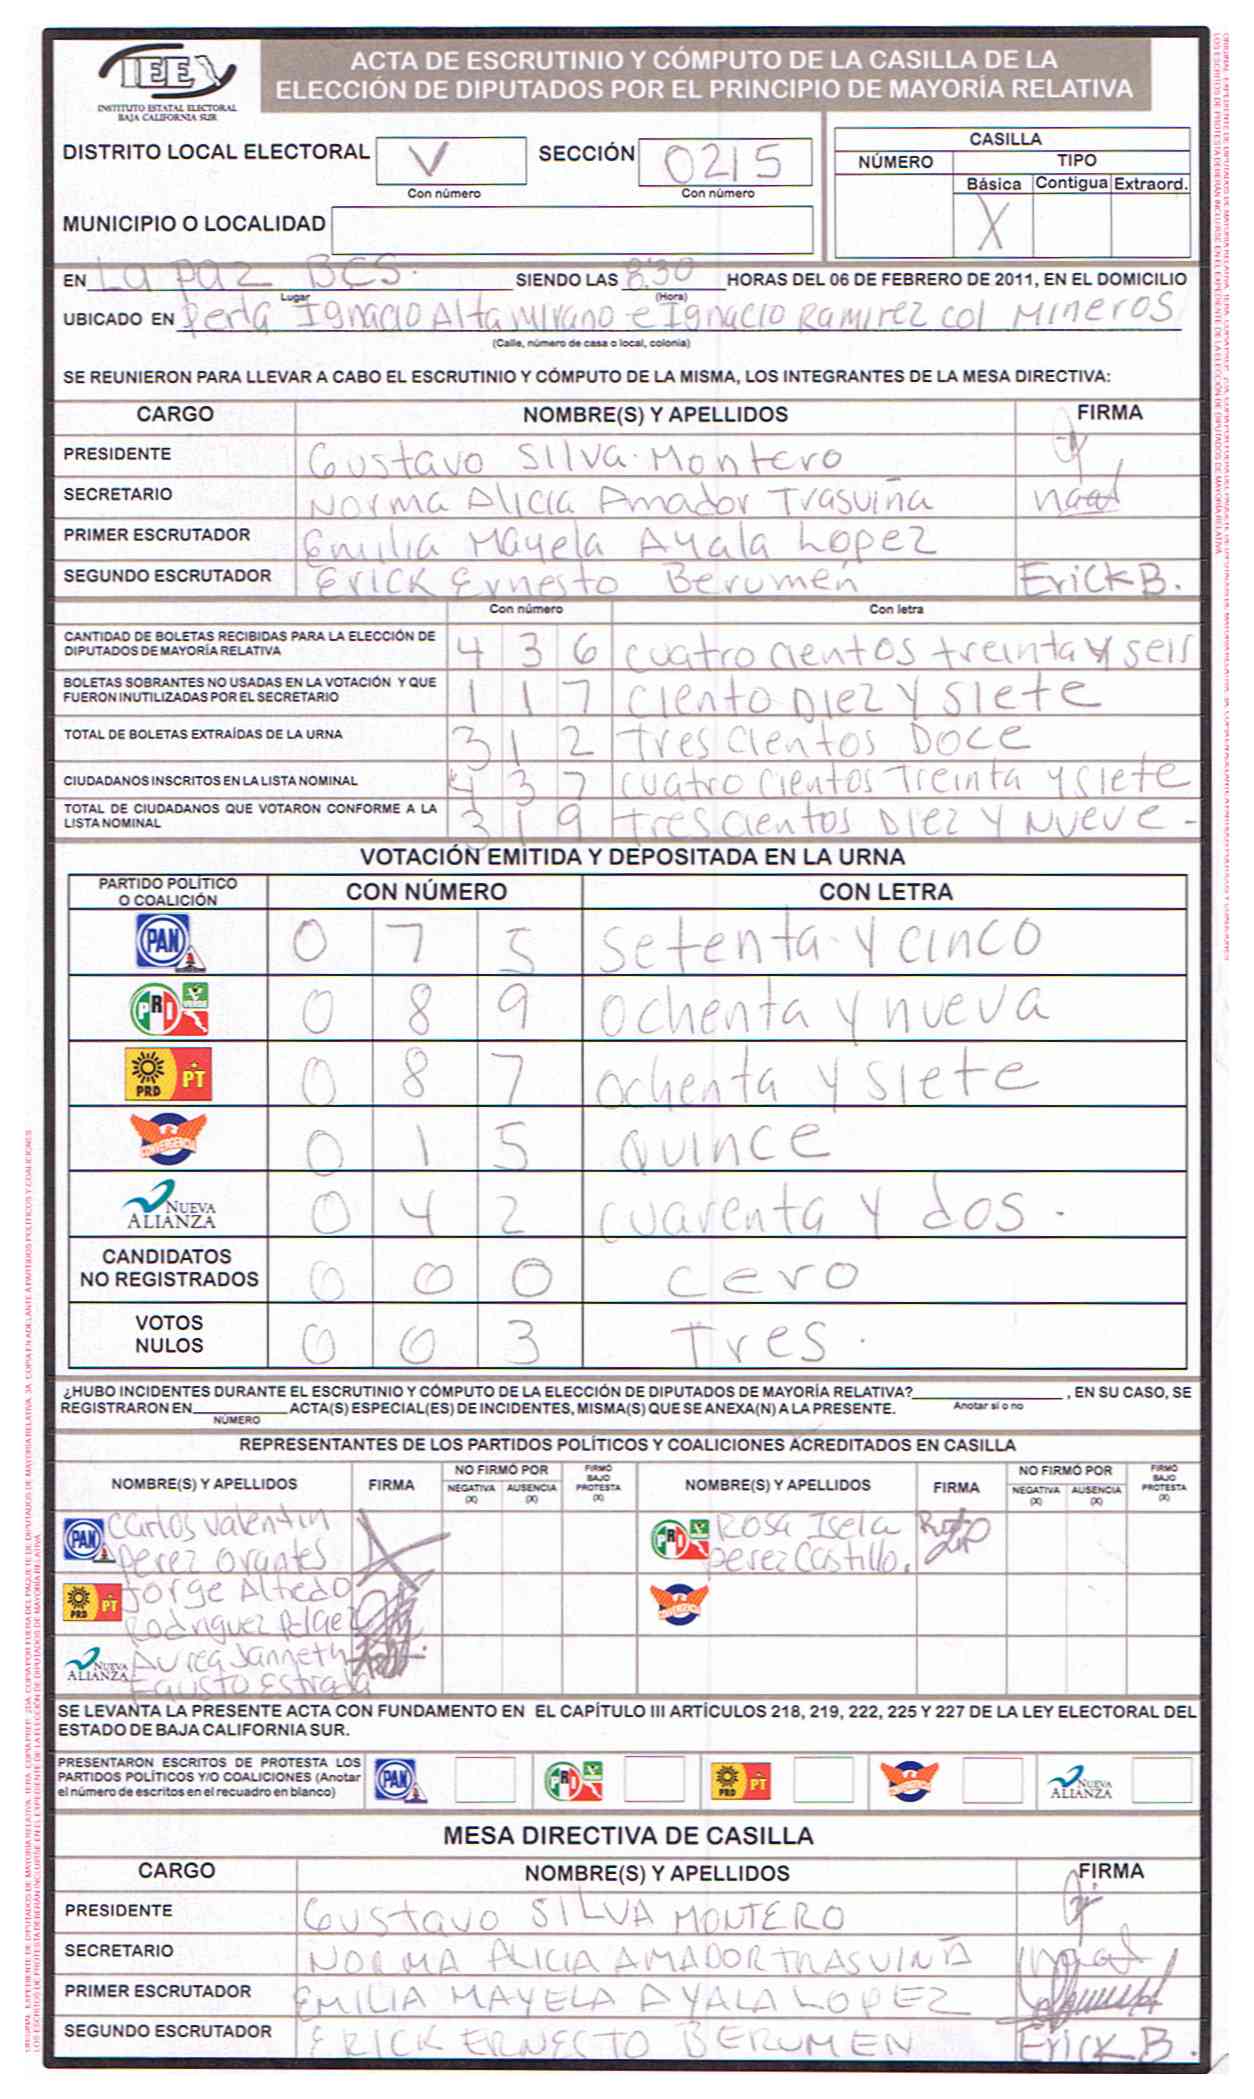 IEE
INSTITUTO ESTATAL ELECTORAL
BAJA CALIFORNIA SUR
ACTA DE ESCRUTINIO Y CÓMPUTO DE LA CASILLA DE LA
ELECCIÓN DE DIPUTADOS POR EL PRINCIPIO DE MAYORÍA RELATIVA
DISTRITO LOCAL ELECTORAL V SECCIÓN 0215
Con número Con número
MUNICIPIO O LOCALIDAD
CASILLA
NÚMERO TIPO
Básica Contigua Extraord.
X
EN La paz BCS. SIENDO LAS 8:30 HORAS DEL 06 DE FEBRERO DE 2011, EN EL DOMICILIO
Lugar (Hora)
UBICADO EN perla Ignacio Altamirano e Ignacio Ramirez col Mineros
(Calle, número de casa o local, colonia)
SE REUNIERON PARA LLEVAR A CABO EL ESCRUTINIO Y CÓMPUTO DE LA MISMA, LOS INTEGRANTES DE LA MESA DIRECTIVA:
CARGO NOMBRE(S) Y APELLIDOS FIRMA
PRESIDENTE Gustavo Silva Montero
SECRETARIO Norma Alicia Amador Trasviña
PRIMER ESCRUTADOR Emilia Mayela Ayala Lopez
SEGUNDO ESCRUTADOR Erick Ernesto Berumen Erick B.
Con número Con letra
CANTIDAD DE BOLETAS RECIBIDAS PARA LA ELECCIÓN DE
DIPUTADOS DE MAYORÍA RELATIVA 4 3 6 cuatro cientos treinta y seis
BOLETAS SOBRANTES NO USADAS EN LA VOTACIÓN Y QUE
FUERON INUTILIZADAS POR EL SECRETARIO 1 1 7 ciento Diez y siete
TOTAL DE BOLETAS EXTRAÍDAS DE LA URNA 3 1 2 tres cientos Doce
CIUDADANOS INSCRITOS EN LA LISTA NOMINAL 4 3 7 cuatro cientos Treinta y siete
TOTAL DE CIUDADANOS QUE VOTARON CONFORME A LA
LISTA NOMINAL 3 1 9 tres cientos Diez y Nueve -
VOTACIÓN EMITIDA Y DEPOSITADA EN LA URNA
PARTIDO POLÍTICO
O COALICIÓN CON NÚMERO CON LETRA
PAN 0 7 5 setenta y cinco
PRI VERDE 0 8 9 ochenta y nueva
PRD PT 0 8 7 ochenta y siete
CONVERGENCIA 0 1 5 Quince
NUEVA ALIANZA 0 4 2 cuarenta y dos.
CANDIDATOS
NO REGISTRADOS 0 0 0 cero
VOTOS
NULOS 0 0 3 Tres.
¿HUBO INCIDENTES DURANTE EL ESCRUTINIO Y CÓMPUTO DE LA ELECCIÓN DE DIPUTADOS DE MAYORÍA RELATIVA? , EN SU CASO, SE
Anotar sí o no
REGISTRARON EN ACTA(S) ESPECIAL(ES) DE INCIDENTES, MISMA(S) QUE SE ANEXA(N) A LA PRESENTE.
NÚMERO
REPRESENTANTES DE LOS PARTIDOS POLÍTICOS Y COALICIONES ACREDITADOS EN CASILLA
NOMBRE(S) Y APELLIDOS FIRMA NO FIRMÓ POR NEGATIVA (X) AUSENCIA (X) FIRMÓ BAJO PROTESTA (X) NOMBRE(S) Y APELLIDOS FIRMA NO FIRMÓ POR NEGATIVA (X) AUSENCIA (X) FIRMÓ BAJO PROTESTA (X)
PAN Carlos Valentin PRI VERDE Rosa Isela
perez Orantes perez Castillo.
PRD PT Jorge Alfredo CONVERGENCIA
Rodriguez
NUEVA ALIANZA Aurea Janneth
Fausto Estrada
SE LEVANTA LA PRESENTE ACTA CON FUNDAMENTO EN EL CAPÍTULO III ARTÍCULOS 218, 219, 222, 225 Y 227 DE LA LEY ELECTORAL DEL
ESTADO DE BAJA CALIFORNIA SUR.
PRESENTARON ESCRITOS DE PROTESTA LOS
PARTIDOS POLÍTICOS Y/O COALICIONES (Anotar
el número de escritos en el recuadro en blanco) PAN PRI VERDE PRD PT CONVERGENCIA NUEVA ALIANZA
MESA DIRECTIVA DE CASILLA
CARGO NOMBRE(S) Y APELLIDOS FIRMA
PRESIDENTE Gustavo SILVA MONTERO
SECRETARIO NORMA ALICIA AMADOR TRASVIÑA
PRIMER ESCRUTADOR EMILIA MAYELA AYALA LOPEZ
SEGUNDO ESCRUTADOR ERICK ERNESTO BERUMEN Erick B.